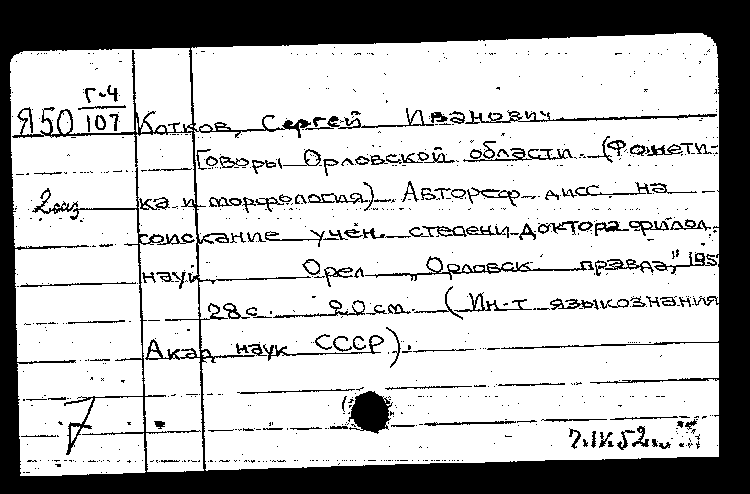 Г-4
Я50 107 Котков, Сергей Иванович.
Говоры Орловской области. (Фонети-
2 экз
ка и морфология) Автореф. дисс. на
соискание учен. степени доктора филол.
наук. Орел „Орловск. правда," 195
28 с. 20 см. (Ин-т языкознания
Акад наук СССР).
7
7.IV.52